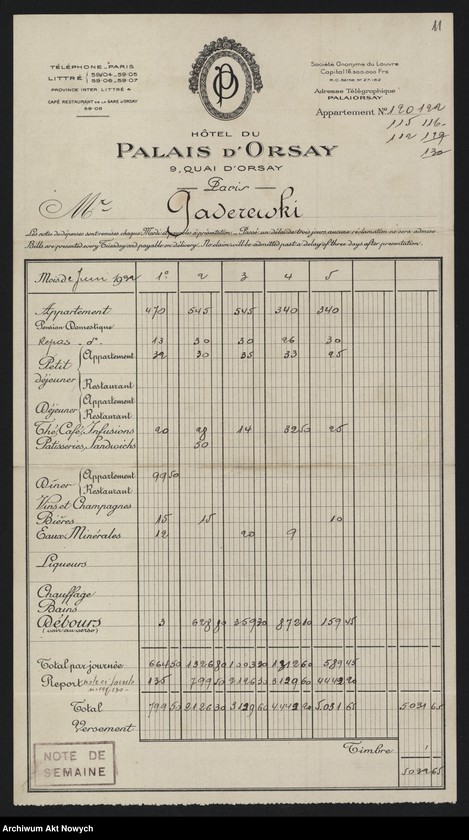 11
TÉLÉPHONE-PARIS
LITTRÉ { 59/04-59-05
59-06-59-07
PROVINCE INTER LITTRÉ 4
CAFÉ RESTAURANT DE LA GARE D'ORSAY
Société Anonyme du Louvre
Adresse Télégraphique
PALAIORSAY
Appartement No 120 122
115 116-
130
HÔTEL DU
PALAIS D'ORSAY
9, QUAI D'ORSAY
Paris
Mr
Gaderewski
La note de dépenses sont remises chaque Mardi et payables à présentation - Passé un délai de trois jours aucune réclamation ne sera admise
Bills are presented every Tuesday and payable on delivery. No claim will be admitted past a delay of three days after presentation.
Mois de Juin 1932 1º 2 3 4 5
Appartement 470 545 545 340 340
Pension Domestique
Repas - dº - 13 30 30 26 30
Petit déjeuner { Appartement 32 30 35 33 25
Restaurant
Déjeuner { Appartement
Restaurant
Thé, Café, Infusions 20 28 14 32 50 25
Patisseries, Sandwichs 50
Dîner { Appartement 99 50
Restaurant
Vins et Champagnes
Bières 15 15 10
Eaux Minérales 12 20 9
Liqueurs
Chauffage
Bains
Débours 3 628 80 359 30 872 10 159 45
(voir au verso)
Total par journée 664 50 1326 80 1003 30 1312 60 589 45
Report 135 799 50 2126 30 3129 60 4442 20
Total 799 50 2126 30 3129 60 4442 20 5031 65 5031 65
Versement
Timbre 1
5032 65
NOTE DE
SEMAINE
Archiwum Akt Nowych